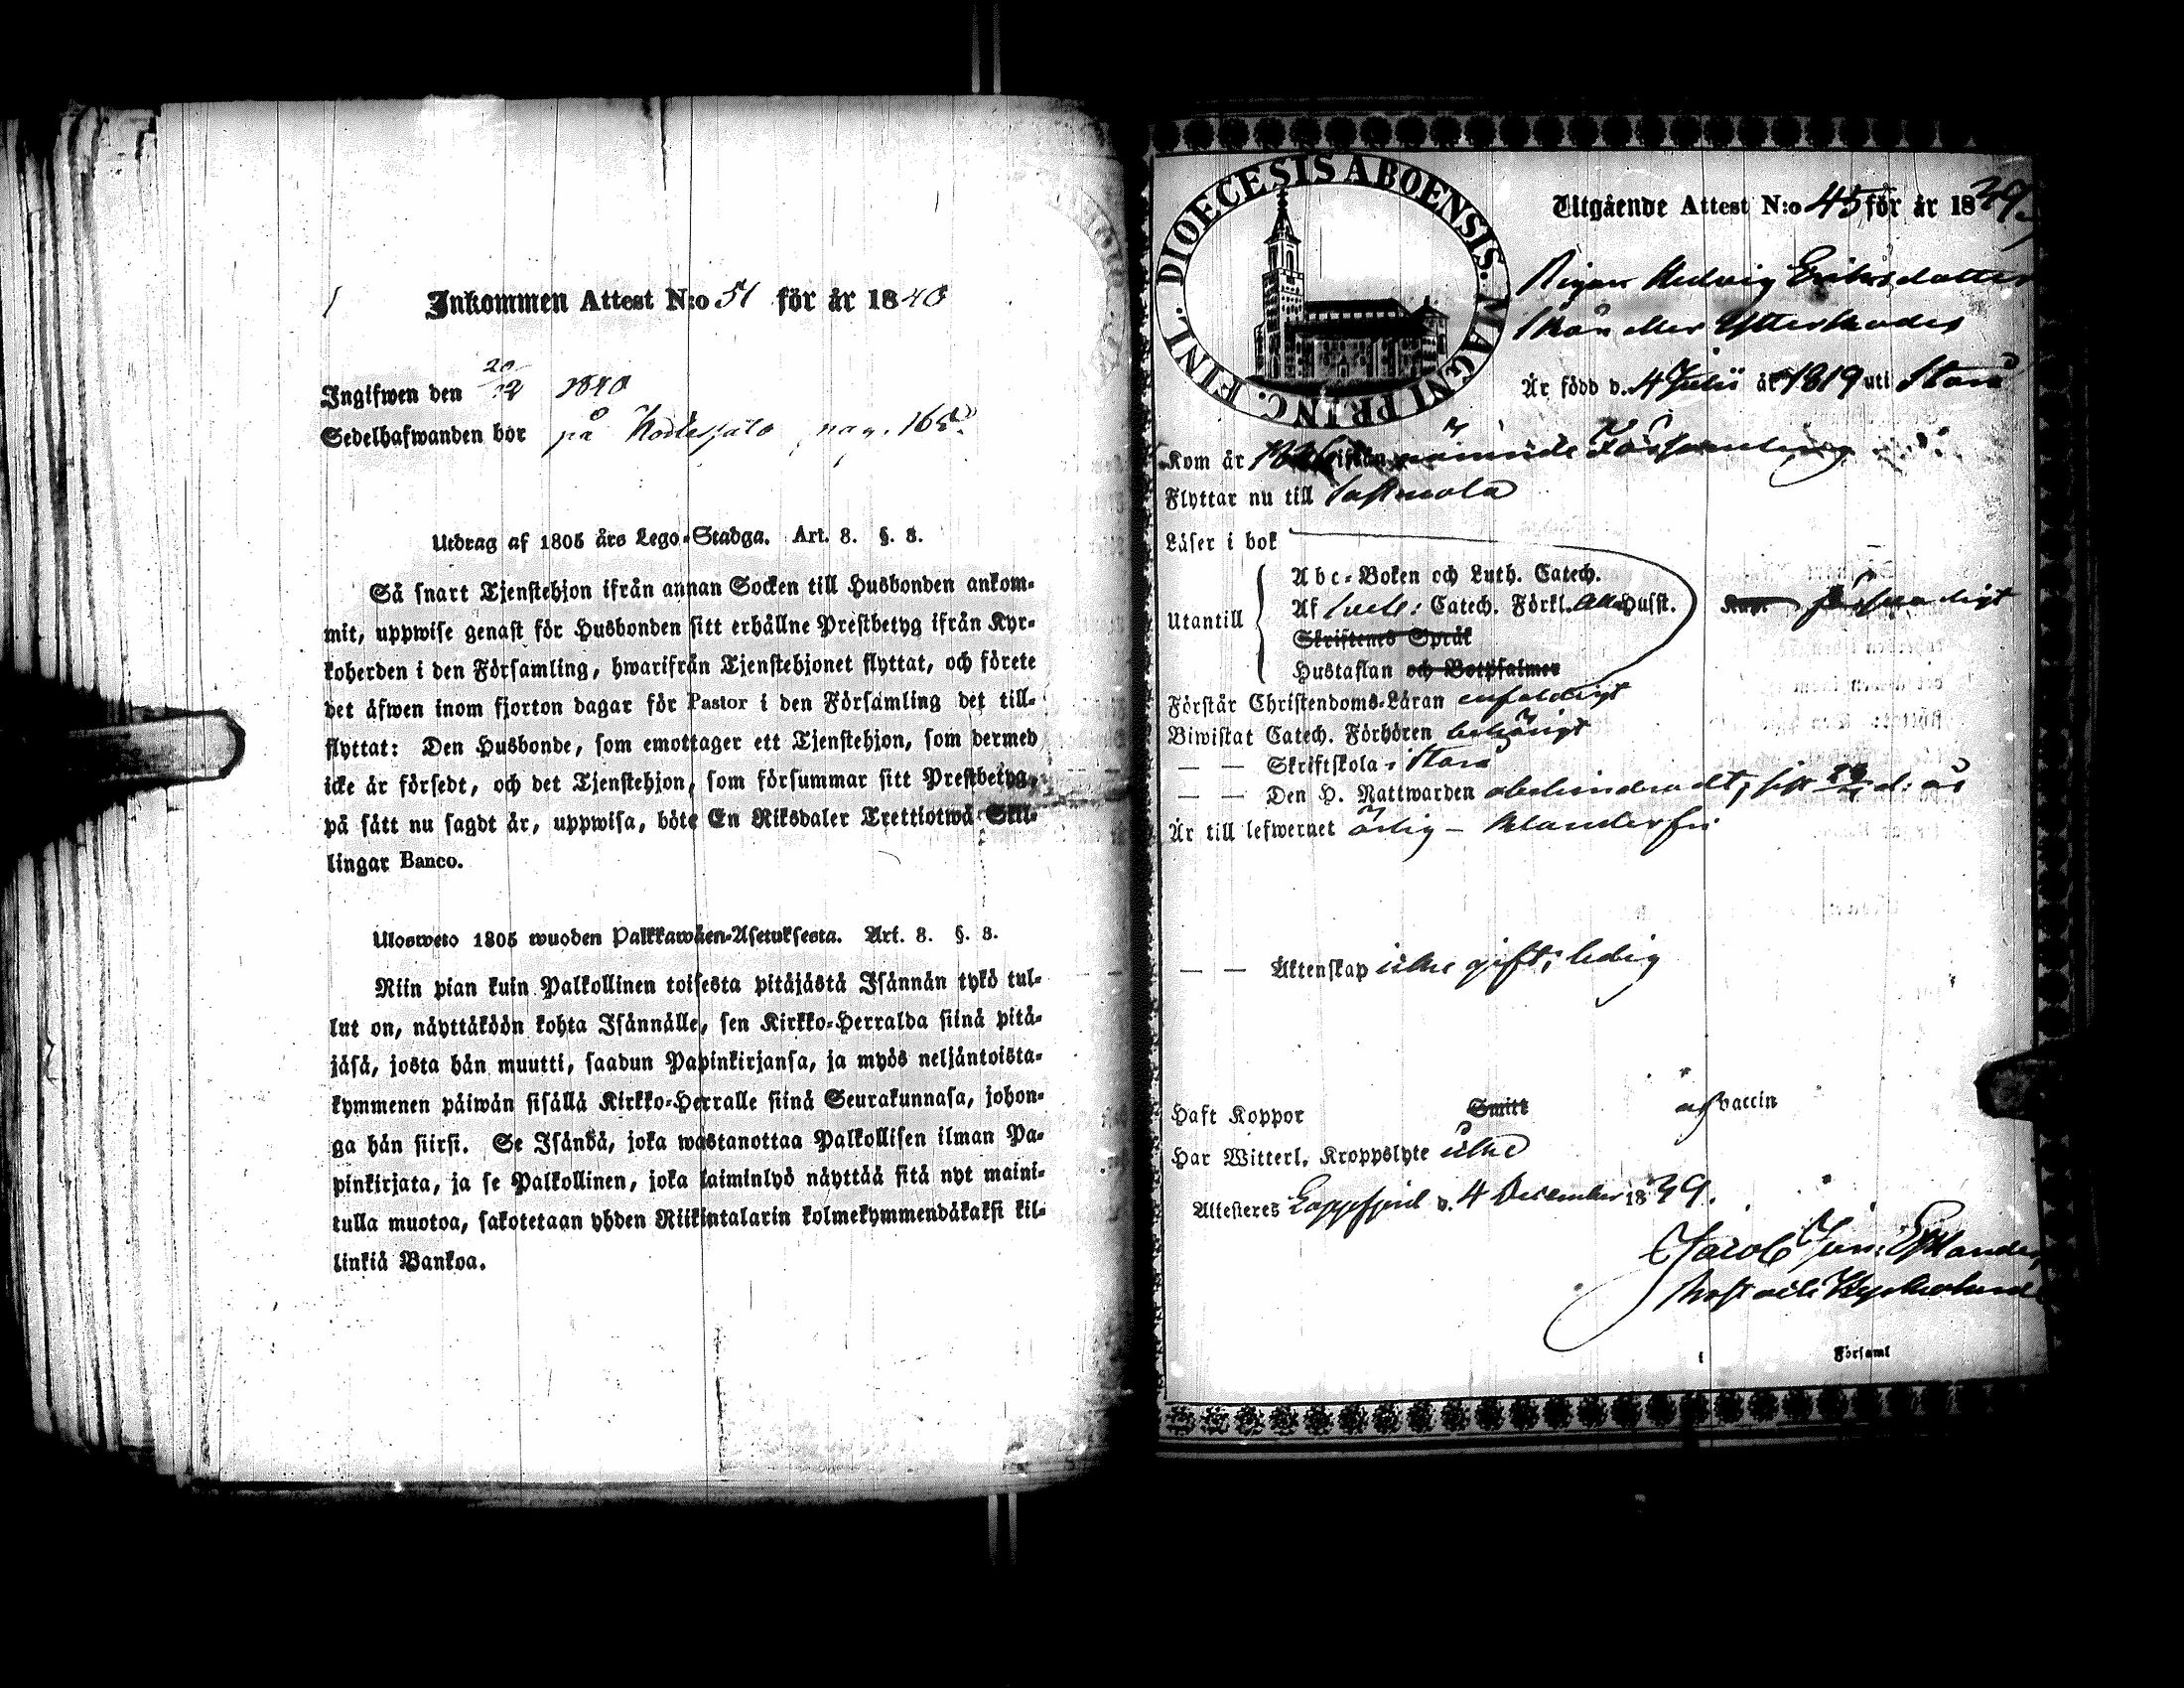 Inkommen Attest N:o 51 för år 1840
Ingifwen den 20/12 1840
Sedelhafwanden bor på pag. 165.
Utdrag af 1805 års Lego-Stadga. Art. 8. §. 8.
Så snart Tjenstehjon ifrån annan Socken till Husbonden ankom-
mit, uppwise genast för Husbonden sitt erhållne Prestbetyg ifrån Kyr-
koherden i den Församling, hwarifrån Tjenstehjonet flyttat, och förete
det äfwen inom fjorton dagar för Pastor i den Församling det till-
flyttat: Den Husbonde, som emottager ett Tjenstehjon, som dermed
icke är försedt, och det Tjenstehjon, som försummar sitt Prestbetyg,
på sätt nu sagdt är, uppwisa, böte En Riksdaler Trettiotwå Skil-
lingar Banco.
Ulosweto 1805 wuoden Palkkawäen-Asetuksesta. Art. 8. §. 8.
Niin pian kuin Palkollinen toisesta pitäjästä Isännän tykö tul-
lut on, näyttäköön kohta Isännälle, sen Kirkko-Herralda siinä pitä-
jäsä, josta hän muutti, saadun Papinkirjansa, ja myös neljäntoista-
kymmenen päiwän sisällä Kirkko-Herralle siinä Seurakunnasa, johon-
ga hän siirsi. Se Isändä, joka wastanottaa Palkollisen ilman Pa-
pinkirjata, ja se Palkollinen, joka laiminlyö näyttää sitä nyt maini-
tulla muotoa, sakotetaan yhden Riikintalarin kolmekymmendäkaksi kil-
linkiä Bankoa.
DIOECESIS ABOENSIS. MAGNI PRINC. FINL.
Utgående Attest N:o 45 för år 1839.
Pigan Hedvig Eriksdotter
från eller Ytterskades
Är född d. 4 Julii år 1819 uti
Kom år ifrån nämnde Församling
Flyttar nu till Sastmola
Läser i bok
Abc-Boken och Luth. Catech.
Utantill Af Catech. Förkl. Husst.
Skriftenes Språk
Hustaflan och Botpsalmer
Förstår Christendoms-Läran enfaldigt
Biwistat Catech. Förhören behörigt
— — Skriftskola i
— — Den H. Nattwarden obehindradt, sist d. år
Är till lefwernet ärlig – klanderfri
— — Äktenskap icke gift; ledig
Haft Koppor Smitt af vaccin
Har Witterl. Kroppslyte icke
Attesteres Lappfjerd d. 4 December 1839.
Jacob
Prost och Kyrkoherde
i Församl